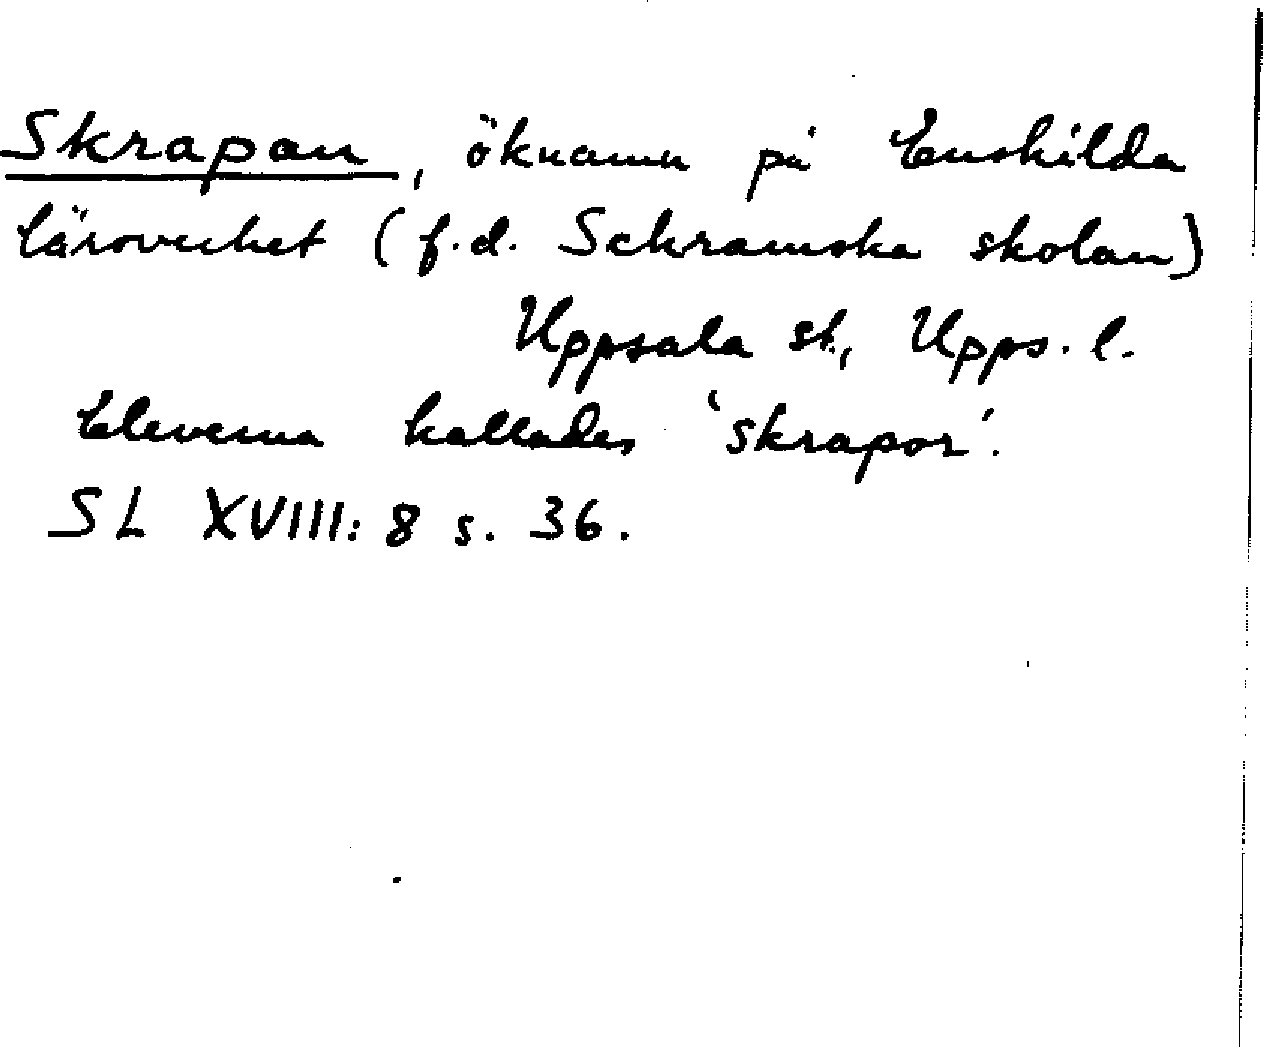 Skrapan, öknamn på Enskilda
läroverket (f.d. Schramska skolan)
Uppsala st, Upps. l.
Eleverna kallades 'skrapor'.
SL XVIII: 8 s. 36.